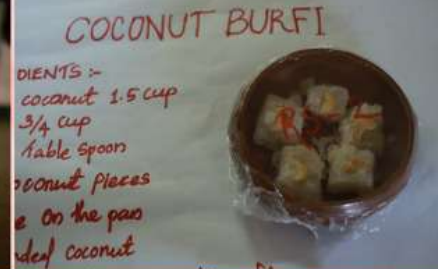 COCONUT BURFI
DIENTS :-
coconut 1.5 cup
3/4 cup
table spoon
oconut pieces
e on the pan
ded coconut